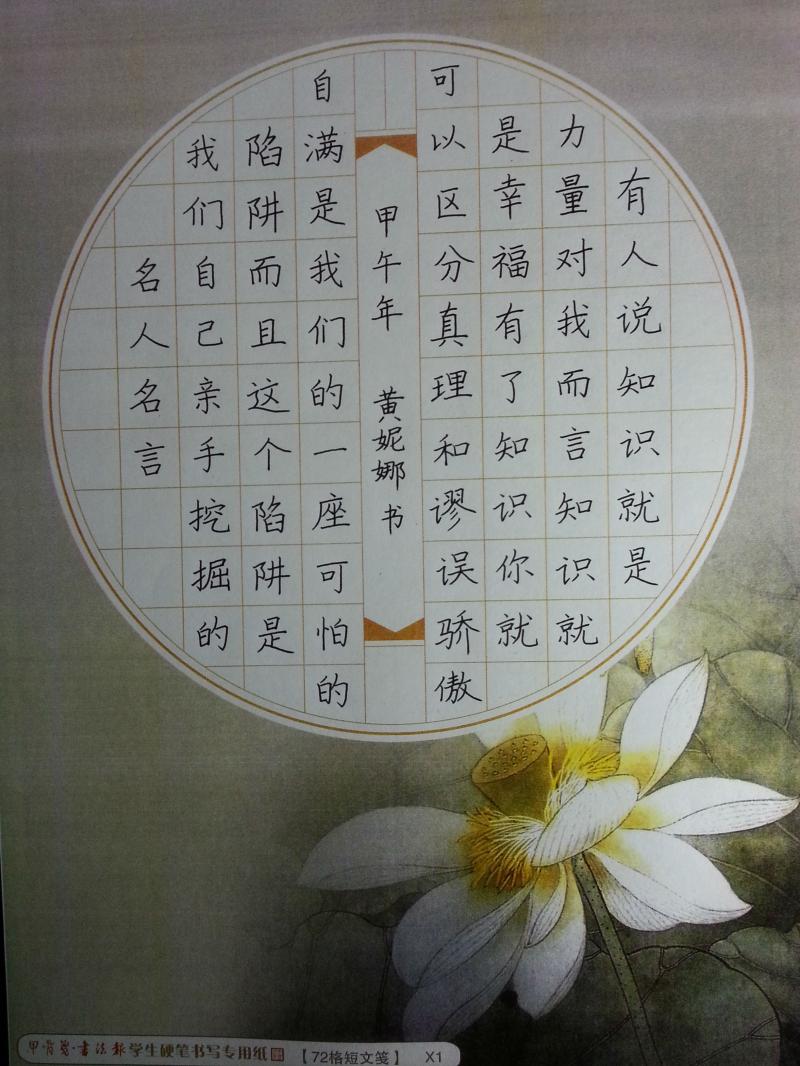 有人说知识就是
力量对我而言知识就
是幸福有了知识你就
可以区分真理和谬误骄傲
自满是我们的一座可怕的
陷阱而且这个陷阱是
我们自己亲手挖掘的
名人名言
甲午年 黄妮娜书
甲骨笺·书法报学生硬笔书写专用纸 【72格短文笺】 X1